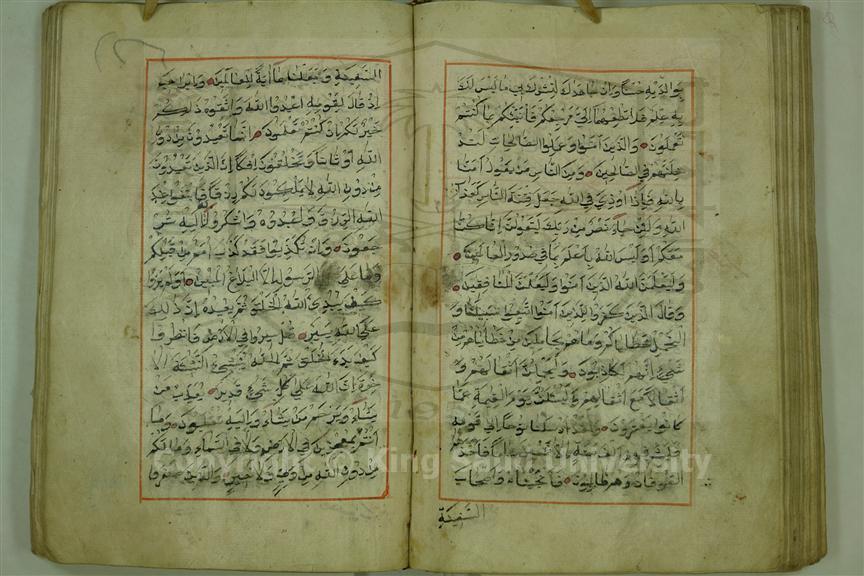 بوالديه حسنا وان جاهداك لتشرك بي ما ليس لك
به علم فلا تطعهما الي مرجعكم فانبئكم بما كنتم
تعملون والذين امنوا وعملوا الصالحات لند
خلنهم في الصالحين ومن الناس من يقول امنا
بالله فاذا اوذي في الله جعل فتنة الناس كعذاب
الله ولئن جاء نصر من ربك ليقولن انا كنا
معكم اوليس الله باعلم بما في صدور العالمين
وليعلمن الله الذين امنوا وليعلمن المنافقين
وقال الذين كفروا للذين امنوا اتبعوا سبيلنا و
لنحمل خطاياكم وما هم بحاملين من خطاياهم من
شيء انهم لكاذبون وليحملن اثقالهم و
اثقالا مع اثقالهم وليسئلن يوم القيمة عما
كانوا يفترون ولقد ارسلنا نوحا الي قومه
فلبث فيهم الف سنة الا خمسين عاما فاخذهم
الطوفان وهم ظالمون فانجيناه واصحاب
السفينة
السفينة وجعلناها اية للعالمين وابراهيم
اذ قال لقومه اعبدوا الله واتقوه ذلكم
خير لكم ان كنتم تعلمون انما تعبدون من دون
الله اوثانا وتخلقون افكا ان الذين تعبدون
من دون الله لا يملكون لكم رزقا فابتغوا عند
الله الرزق واعبدوه واشكروا له اليه تر
جعون وان تكذبوا فقد كذب امم من قبلكم
وما على الرسول الا البلاغ المبين اولم يروا
كيف يبدئ الله الخلق ثم يعيده ان ذلك
على الله يسير قل سيروا في الارض فانظروا
كيف بدء الخلق ثم الله ينشئ النشاة الا
خرة ان الله على كل شيء قدير يعذب من
يشاء ويرحم من يشاء واليه تقلبون وما
انتم بمعجزين في الارض ولا في السماء وما لكم
من دون الله من ولي ولا نصير والذين كفروا
Copyright © King Saud University